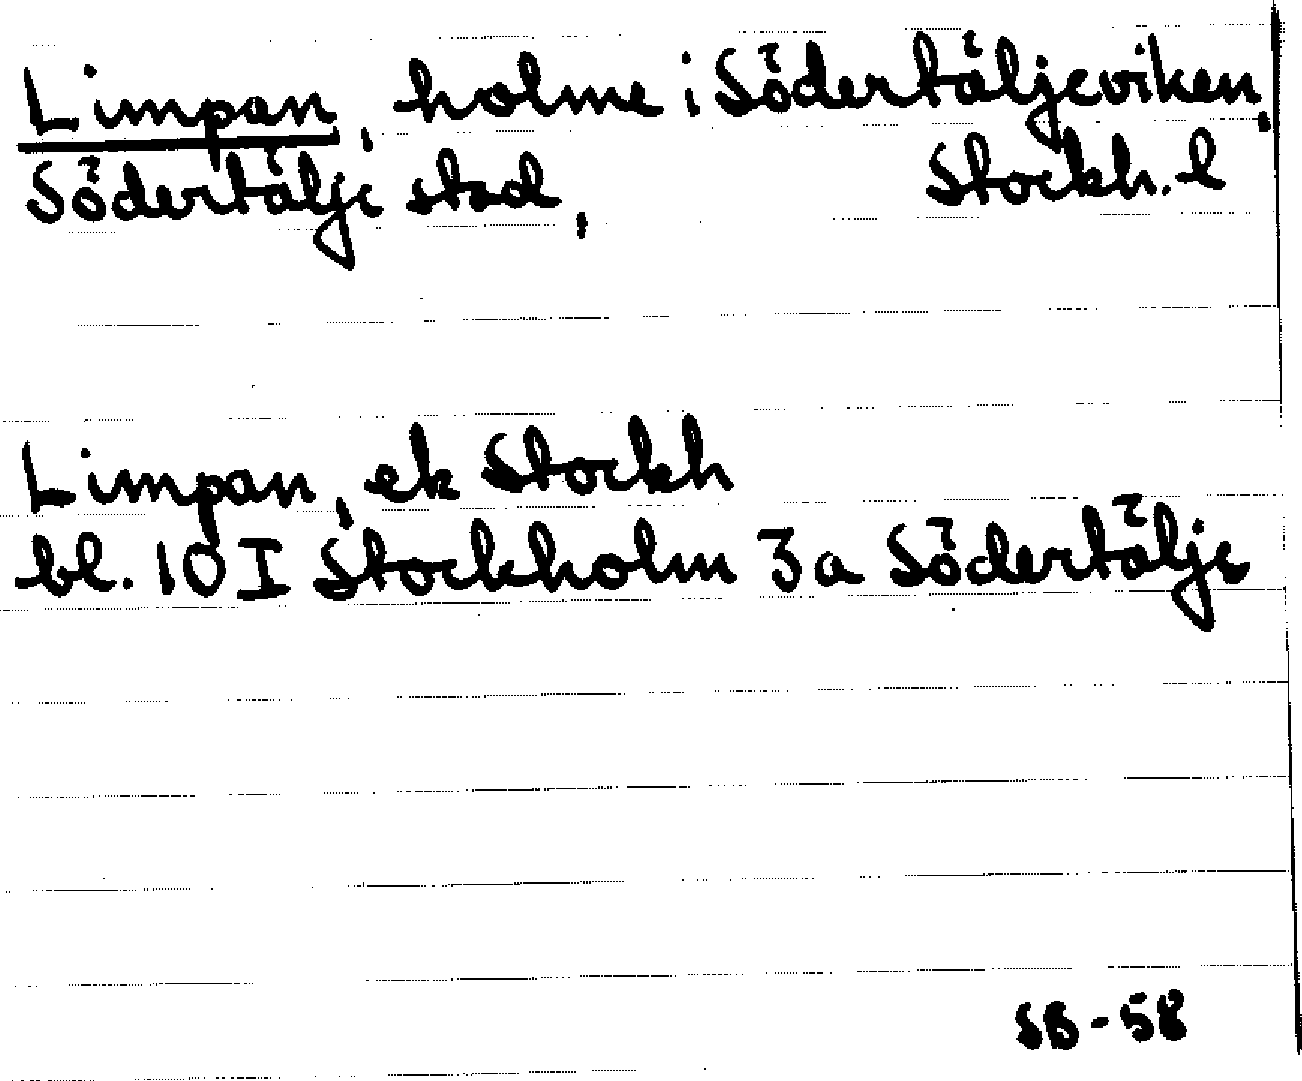 Limpan, holme i Södertäljeviken,
Södertälje stad, Stockh. l
Limpan, ek Stockh
bl. 10 I Stockholm 3a Södertälje
SB-58